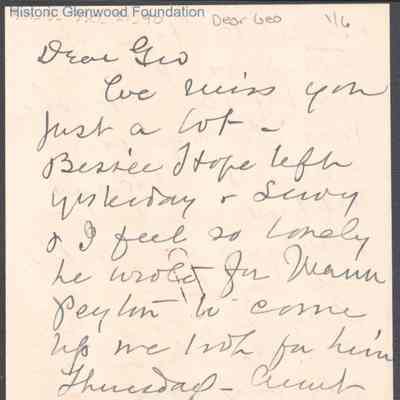 Historic Glenwood Foundation
Dear Geo
1/6
Dear Geo
We miss you
just a lot -
Bessie Hope left
yesterday &
& I feel so lonely
he wrote for Mann
Peyton to come
up we look for him
Thursday - Aunt